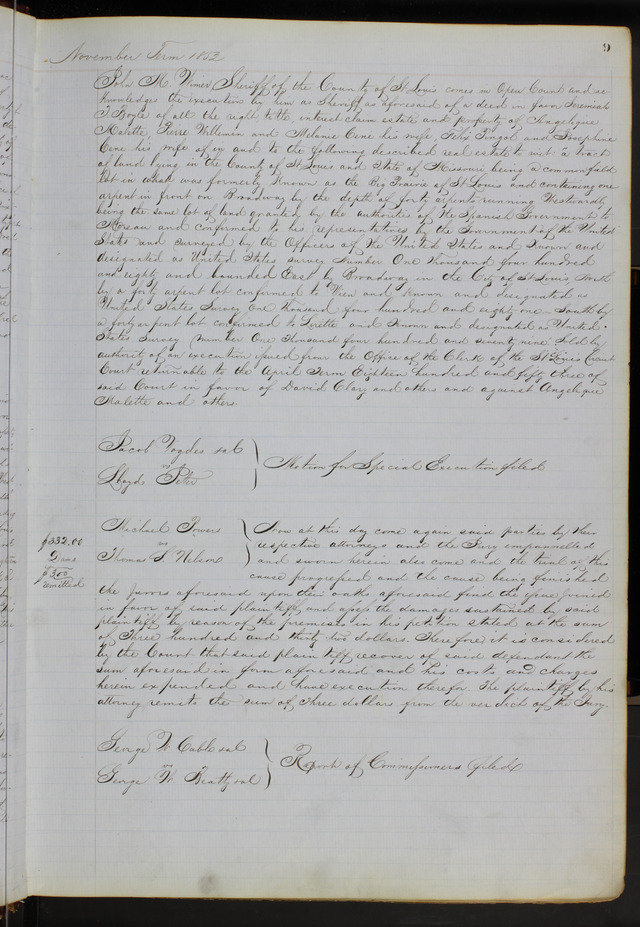 9
November Term 1852
John M. Wimer Sheriff of the County of St Louis comes in Open Court and ac-
knowledges the execution by him as Sheriff as aforesaid of a deed in favor Jeremiah
T Boyle of all the right title interest claim estate and property of Angelique
Malette, Pierre Willemin and Melanie Cene his wife, Felix Pingal and Josephine
Cene his wife of in and to the following described real estate to wit: a tract
of land lying in the County of St Louis and State of Missouri being a commonfield
lot in what was formerly known as the Big Prairie of St Louis and containing one
arpent in front on Broadway by the depth of forty arpents running Westwardly
being the same lot of land granted by the authorities of the Spanish Government to
Moreau and confirmed to his representatives by the Government of the United
States and surveyed by the Officers of the United States and known and
designated as United States survey number One thousand four hundred
and eighty and bounded East by Broadway in the City of St Louis, North
by a forty arpent lot confirmed to and known and designated as
United States Survey one thousand four hundred and eighty one South by
a forty arpent lot confirmed to Lirette and Known and designated as United
States Survey number One Thousand four hundred and seventy nine. Sold by
authority of an execution issued from the Office of the Clerk of the St Louis Circuit
Court returnable to the April Term Eighteen hundred and fifty three of
said Court in favor of David Clary and others and against Angelique
Malette and others.
Jacob Vogdes et al
vs
Lloyd Peter
Motion for Special Execution filed
$332.00
Dams
$3.00
remitted
Michael Powers
vs
Thomas S Nelson
Now at this day come again said parties by their
respective attorneys and the Jury empannelled
and sworn herein also come and the trial of this
cause progressed and the cause being finished
the jurors aforesaid upon their oaths aforesaid find the issue joined
in favor of said plaintiff, and assess the damages sustained by said
plaintiff by reason of the premises in his petition stated at the sum
of Three hundred and thirty two dollars. Therefore it is considered
by the Court that said plaintiff recover of said defendant the
sum aforesaid in form aforesaid and his costs and charges
herein expended and have execution therefor. The plaintiff by his
attorney remits the sum of Three dollars from the verdict of the Jury.
George W. Cable et al
vs
George W. Beatty et al
Report of Commissioners filed